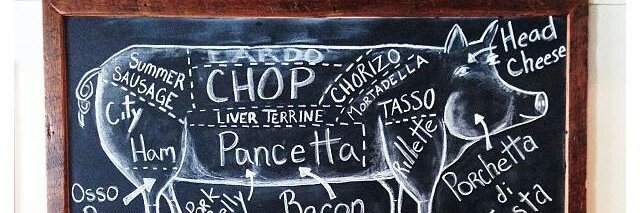 LARDO
Head
Cheese
SUMMER
SAUSAGE
CHOP
CHORIZO
MORTADELLA
City
Ham
LIVER TERRINE
TASSO
Pancetta
Rillette
Porchetta
di
Osso
Bacon